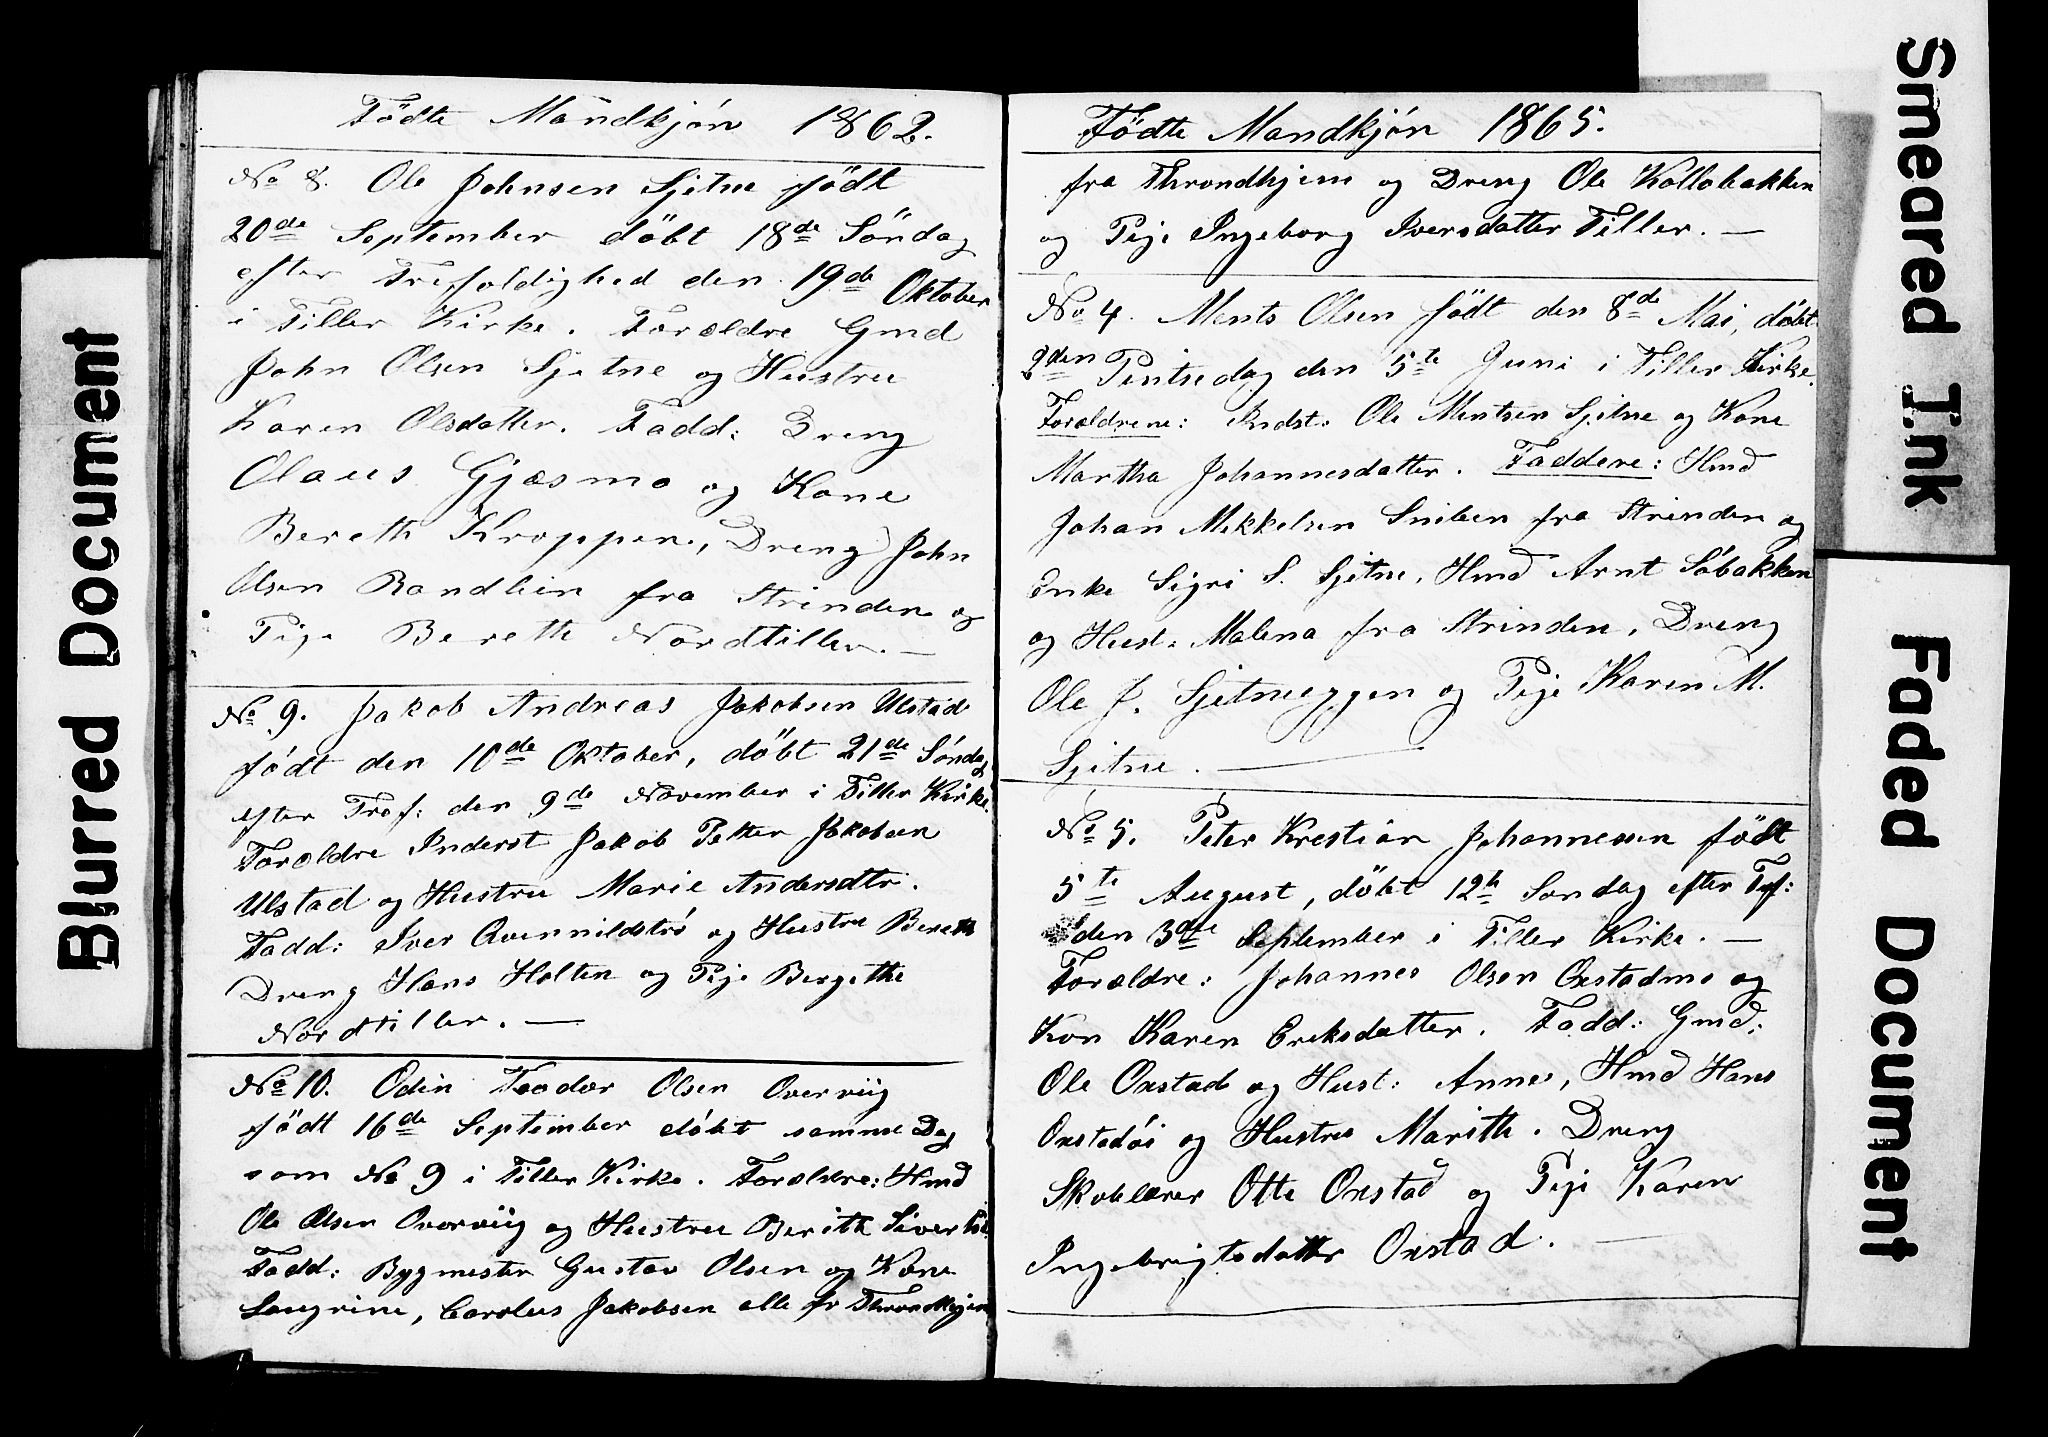 Blurred Document
Födte Mandkjön 1862.
No 8. Ole Johnsen Sjetne födt
20de September döbt 18de Söndag
efter Trefoldighed den 19de Oktober
i Tiller Kirke. Forældre Gmd
John Olsen Sjetne og Hustru
Karen Olsdatter. Fadd: Dreng
Olaus Gjæsmo og Kone
Bereth Kroppen, Dreng John
Olsen Randlien fra Strinden og
Pige Bereth Nordtiller. —
No 9. Jakob Andreas Jakobsen Ulstad
födt den 10de Oktober, döbt 21de Söndag
efter Tref: den 9de November i Tiller Kirke.
Forældre Inderst Jakob Petter Jakobsen
Ulstad og Hustru Marie Andersdtr.
Fadd: Iver Qvennildströ og Hustru Bereth
Dreng Hans Holten og Pige Bergethe
Nordtiller. —
No 10. Odin Teodor Olsen Overviig
födt 16de September döbt samme Dag
som No 9 i Tiller Kirke. Forældre: Hmd
Ole Olsen Overviig og Hustru Berith
Fadd: Bygmester Gustav Olsen og Kone
Laugrine, Carolus Jakobsen alle fr Throndhjem
Födte Mandkjön 1865.
fra Throndhjem og Dreng Ole Kollobakken
og Pige Ingeborg Iversdatter Tiller. —
No 4. Ments Olsen födt den 8de Mai, döbt
2den Pintsedag den 5te Juni i Tiller Kirke.
Forældrene: Indst. Ole Mentsen Sjetne og Kone
Martha Johannesdatter. Faddere: Hmd
Johan Mikkelsen Sniben fra Strinden og
Enke Sigri S. Sjetne, Hmd Arnt Söbakken
og Hust. Malena fra Strinden, Dreng
Ole J. Sjetneggen og Pige Karen M.
Sjetne. —
No 5. Peter Krestian Johannesen födt
5te August, döbt 12te Söndag efter Tref:
den 3die September i Tiller Kirke. —
Forældre: Johannes Olsen Oxstadmo og
Kon Karen Eriksdatter. Fadd: Gmd:
Ole Oxstad og Hust: Anne, Hmd Hans
Oxstadöi og Hustru Marith. Dreng
Skolelærer Otte Oxstad og Pige Karen
Ingebrigtsdatter Oxstad. —
Smeared Ink
Faded Document